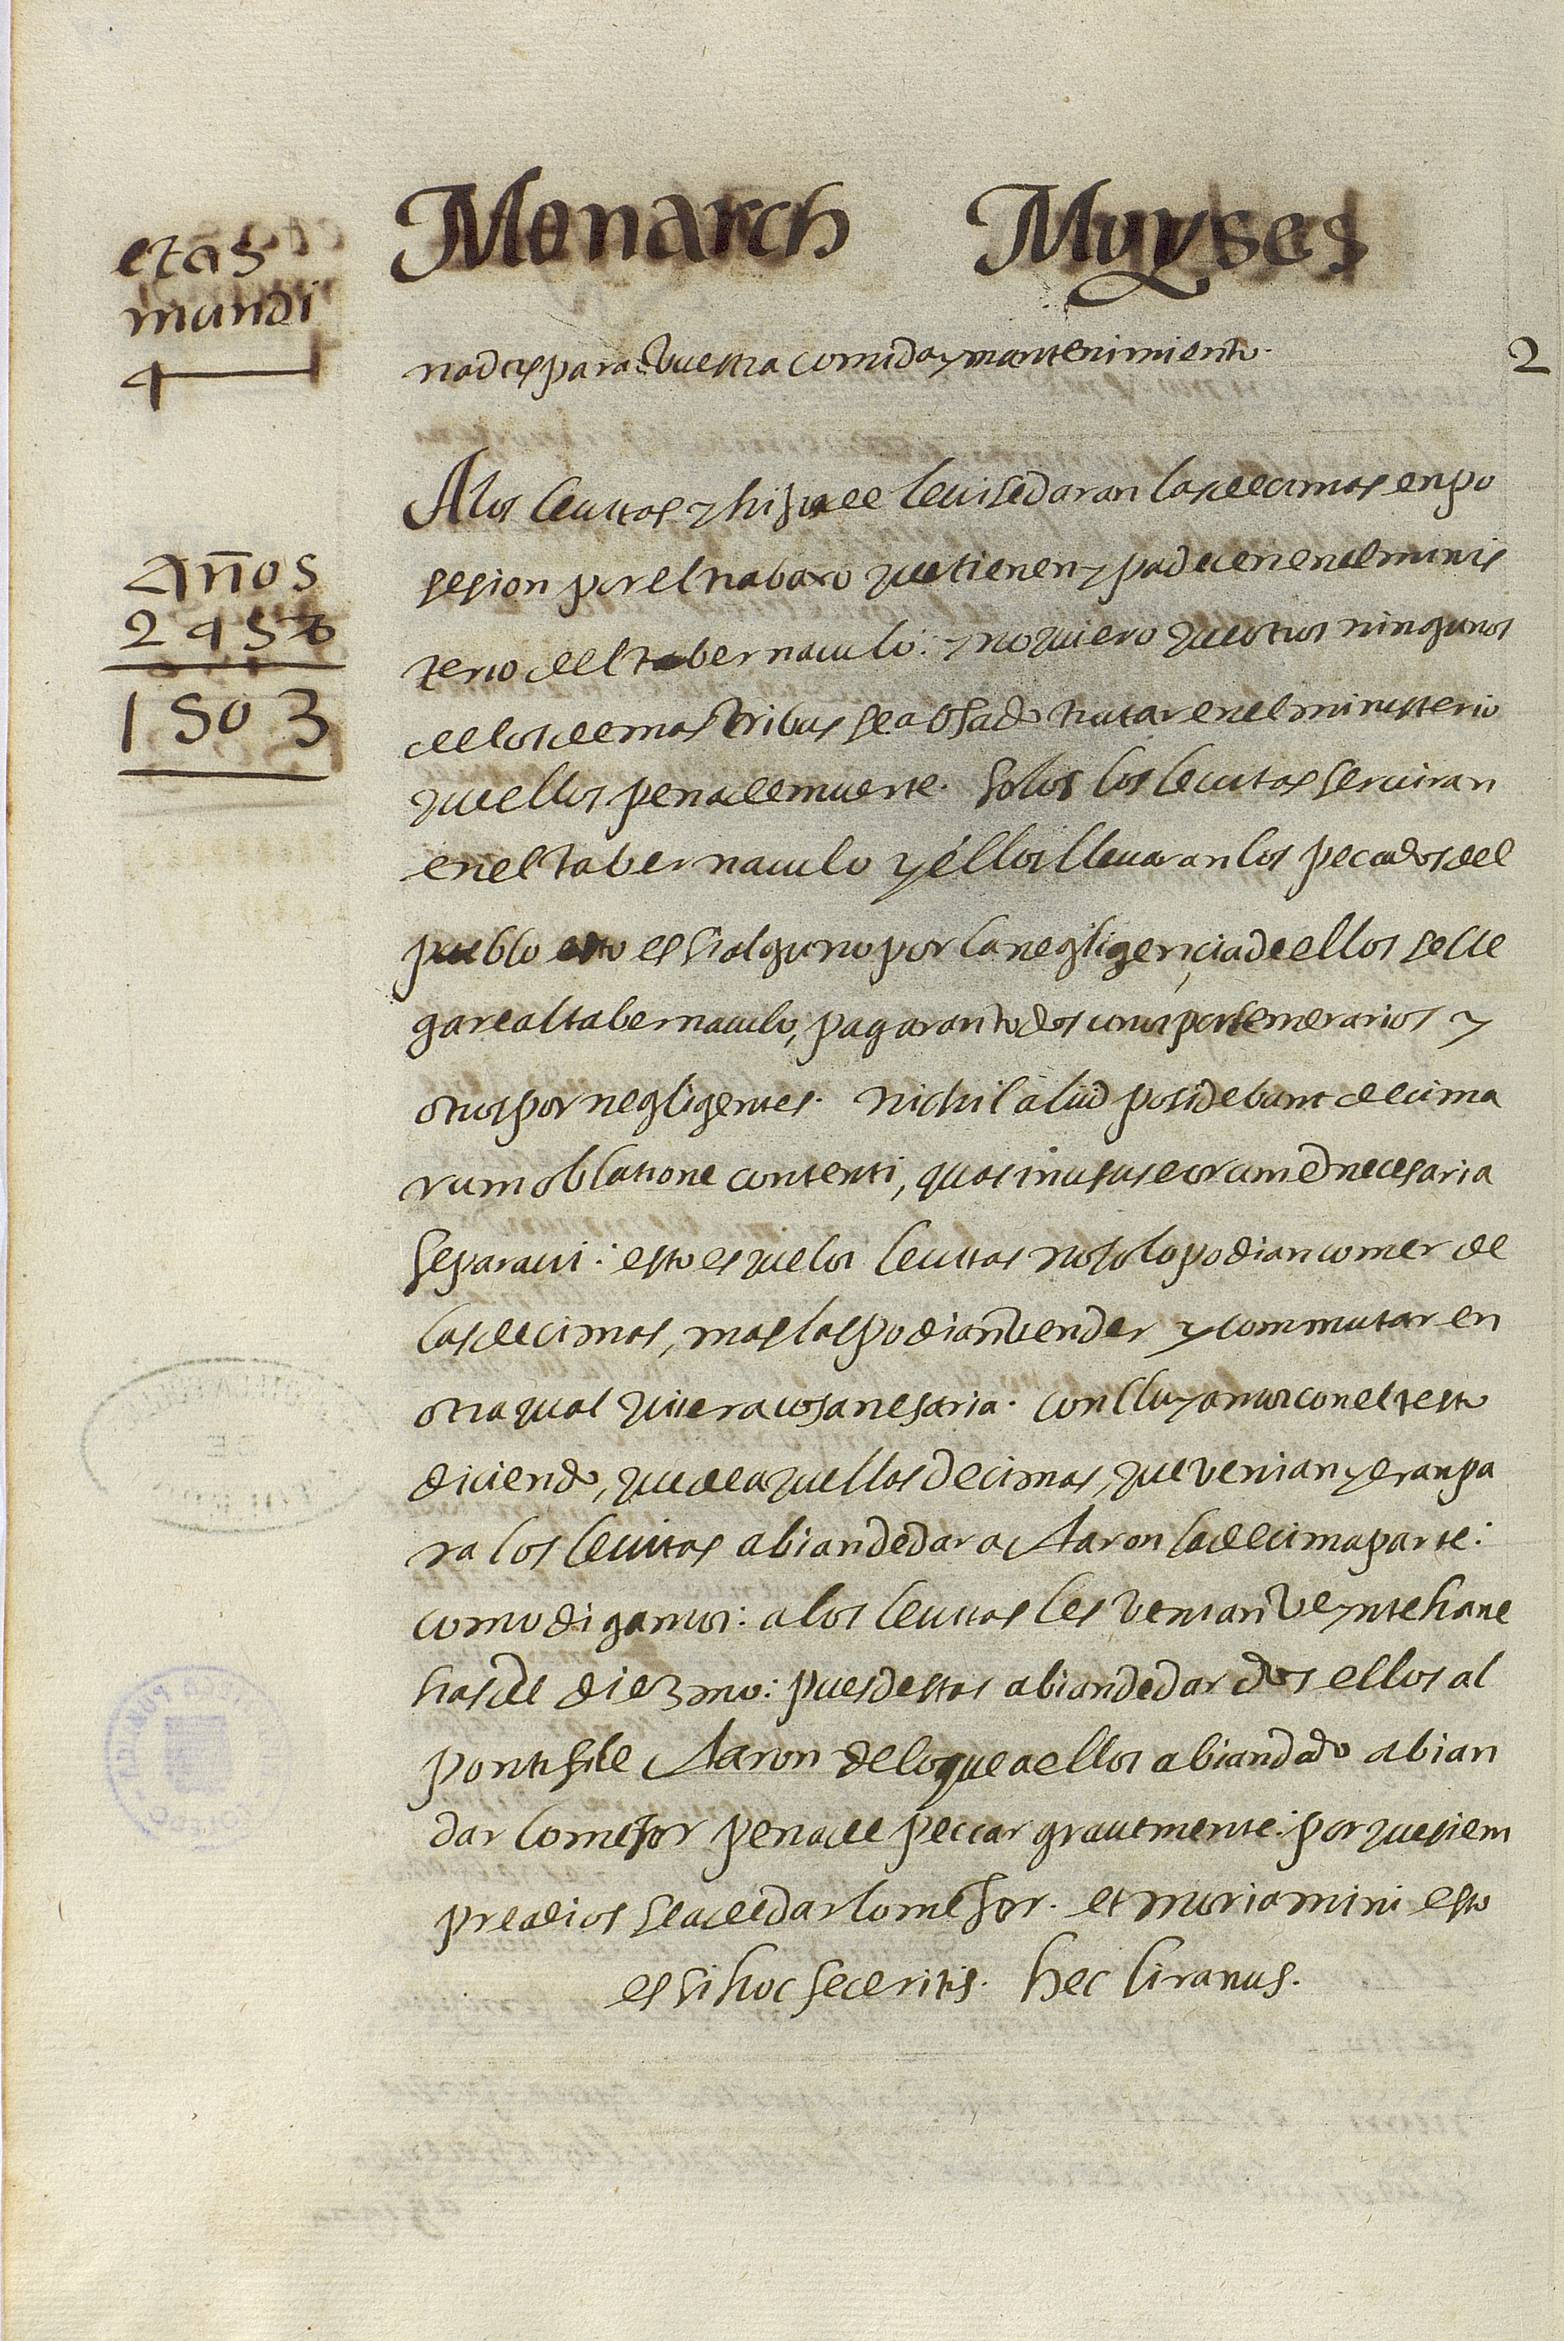 Monarch Muyses
etas
mundi
4
nadas para vuestra comida y mantenimiento.
2
A los leuitas y hijos de leui se daran las decimas en po
sesion por el trabaxo que tienen y padecen en el minis
terio del tabernaculo: y no quiero que otros ningunos
Años
2457
1503
de los demas tribus sea osado tratar en el ministerio
que ellos pena de muerte. solos los leuitas seruiran
en el tabernaculo y éllos lleuaran los pecados del
pueblo esto es si alguno por la negligençia de ellos se lle
gare al tabernaculo, pagaran todos unos por temerarios y
otros por negligentes. nichil aliud posidebant decima
rum oblatione contenti, quas in usus eorum et necesaria
separaui: esto es que los leuitas no solo podian comer de
las decimas, mas las podian vender y commutar en
otra qual quiera cosa nesaria. conlluyamos con el testo
diciendo, que de aquellas decimas, que venian y eran pa
ra los leuitas abian de dar a Aaron la decima parte:
como digamos: a los leuitas les venian veynte hane
has de diezmo: pues destas abian de dar dos ellos al
pontifile Aaron de lo que a ellos abian dado abian
dar lo mejor pena de peccar grauemente: por que siem
pre a dios se a de dar lo mejor. et moriamini esto
es si hoc feceritis. hec liranus.